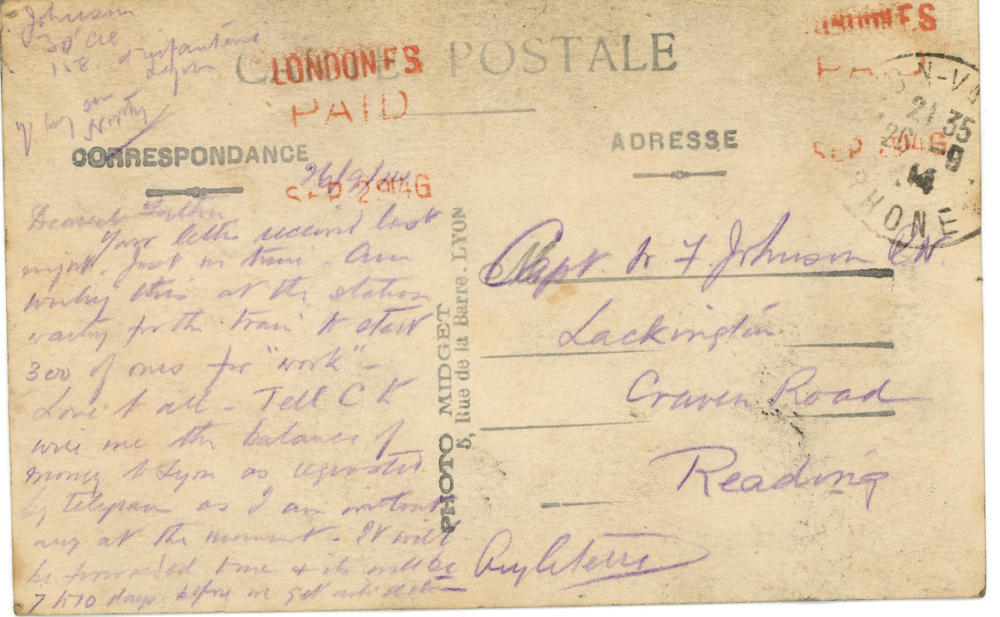 Johnson
30' Cie
158 d'infanterie
Lyon
CARTE POSTALE
LONDON F.S
PAID
SEP 29 14 G
LONDON F.S
PAID
SEP 29 14 G
21 35
26 -9
14
RHONE
CORRESPONDANCE
ADRESSE
26/9/14
Dearest Father
Your letter received last
night. Just in time. Am
writing this at the station
waiting for the train to start
300 of ones for "work" -
Love to all - Tell C to
wire me the balance of
money to Lyon as requested
by telegram as I am without
any at the moment - It will
be forwarded time & it will be
7 to 10 days before we get into
PHOTO MIDGET
5, Rue de la Barre. LYON
Capt. F Johnson
Lackington
Craven Road
Reading
Angleterre